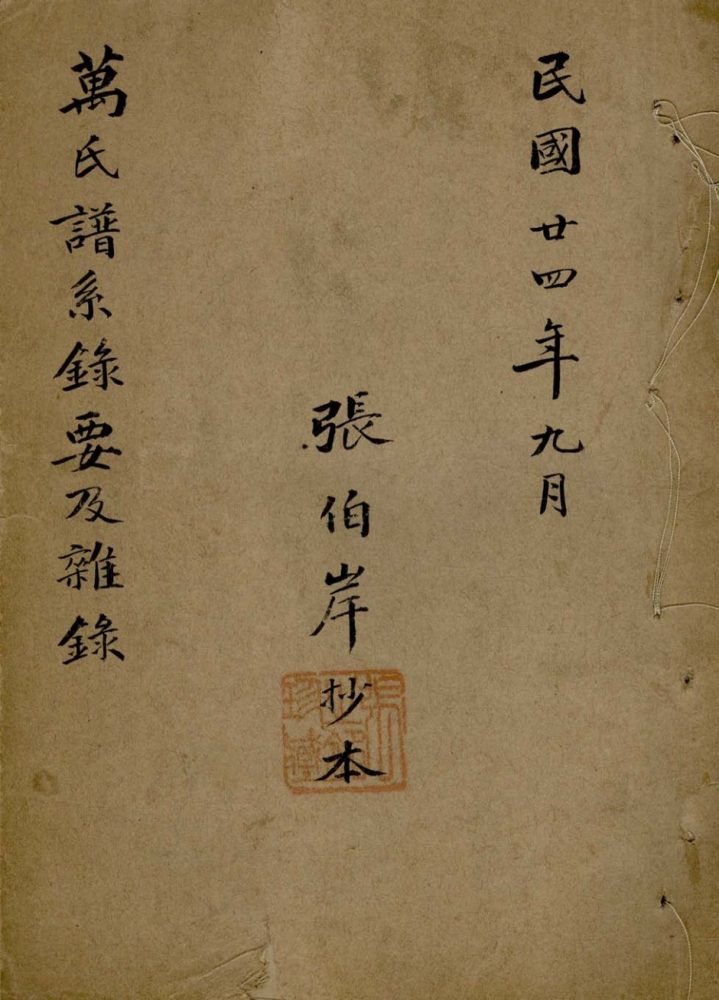 民國廿四年九月
張伯岸抄本
萬氏譜系錄要及雜錄